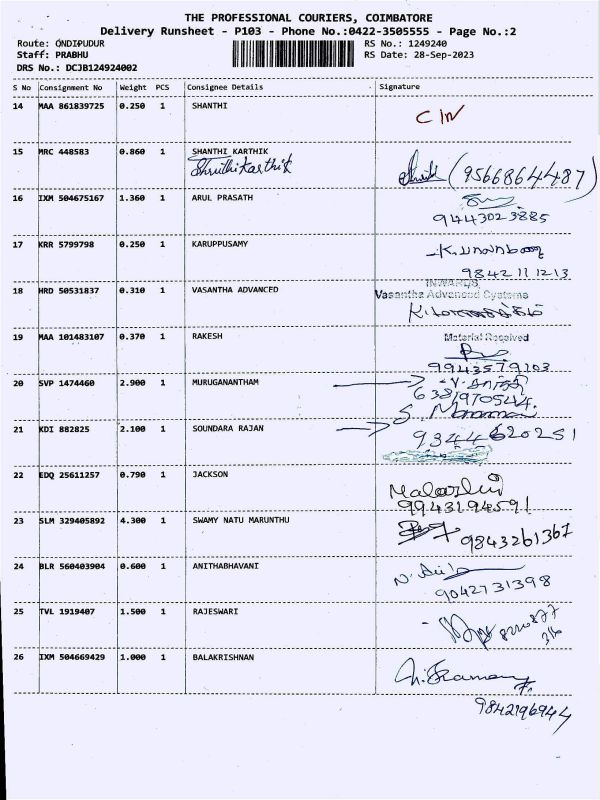 THE PROFESSIONAL COURIERS, COIMBATORE
Delivery Runsheet - P103 - Phone No.:0422-3505555 - Page No.:2
Route: ONDIPUDUR RS No.: 1249240
Staff: PRABHU RS Date: 28-Sep-2023
DRS No.: DCJB124924002
S No Consignment No Weight PCS Consignee Details Signature
14 MAA 861839725 0.250 1 SHANTHI
15 MRC 448583 0.860 1 SHANTHI KARTHIK
Shruthikarthik (9566864487)
16 IXM 504675167 1.360 1 ARUL PRASATH
9443023885
17 KRR 5799798 0.250 1 KARUPPUSAMY
9842111213
INWARDS
18 HRD 50531837 0.310 1 VASANTHA ADVANCED Vasantha Advanced Systems
19 MAA 101483107 0.370 1 RAKESH Material Received
9943579103
20 SVP 1474460 2.900 1 MURUGANANTHAM
6381970544.
21 KDI 882825 2.100 1 SOUNDARA RAJAN 9344620251
22 EDQ 25611257 0.790 1 JACKSON
9943194591
23 SLM 329405892 4.300 1 SWAMY NATU MARUNTHU
9843261367
24 BLR 560403904 0.600 1 ANITHABHAVANI
9042731398
25 TVL 1919407 1.500 1 RAJESWARI
26 IXM 504669429 1.000 1 BALAKRISHNAN
9842196944